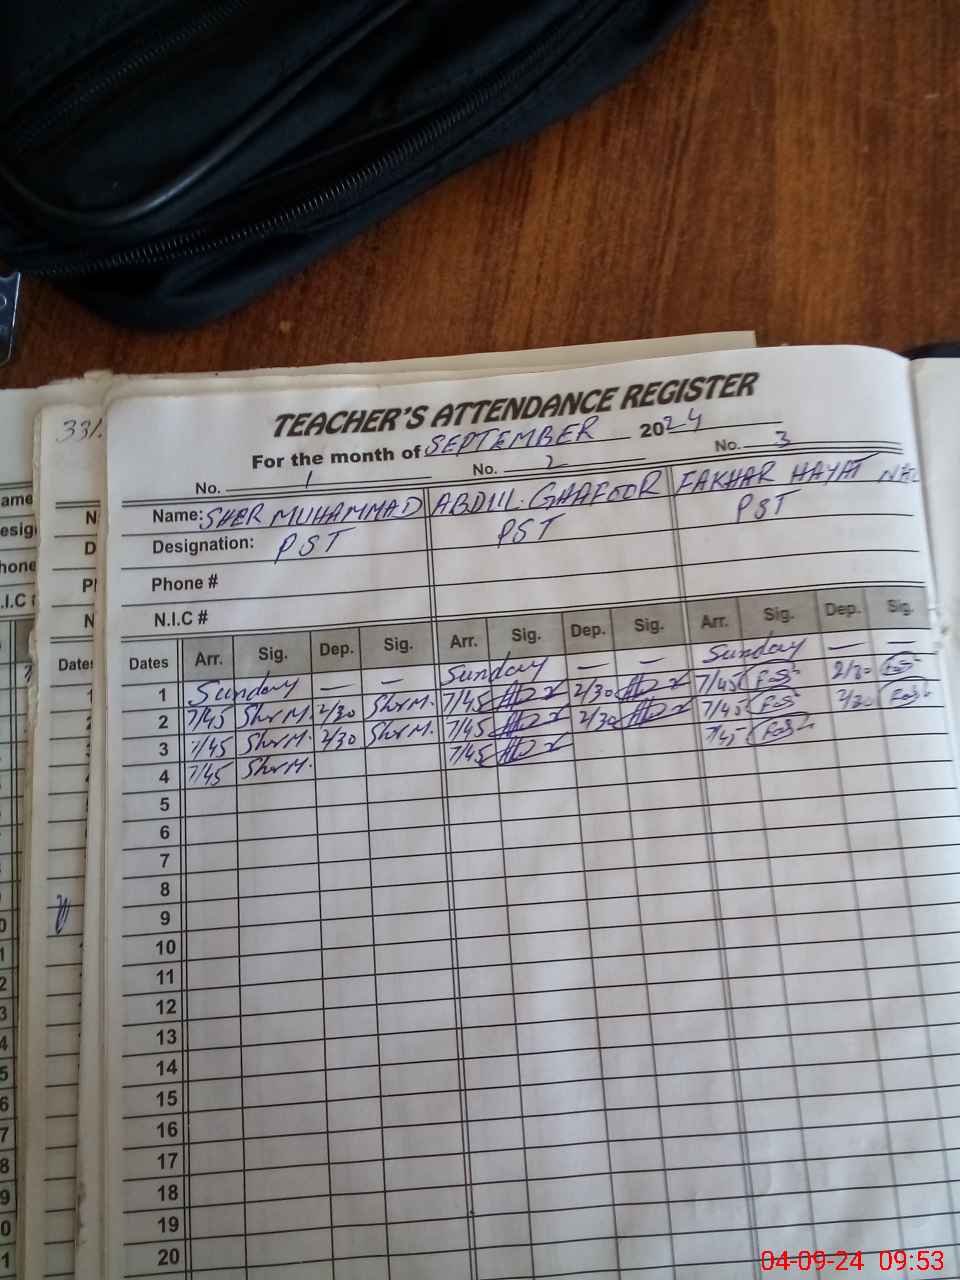 33/.
TEACHER'S ATTENDANCE REGISTER
For the month of SEPTEMBER 2024
No. 1 No. 2 No. 3
Name: SHER MUHAMMAD ABDUL GHAFOOR FAKHAR HAYAT
Designation: PST PST PST
Phone #
N.I.C #
Dates Arr. Sig. Dep. Sig. Arr. Sig. Dep. Sig. Arr. Sig. Dep. Sig.
1 Sunday — — Sunday — — Sunday — —
2 7/45 Sher M. 2/30 Sher M. 7/45 2/30 7/45 2/30
3 7/45 Sher M. 2/30 Sher M. 7/45 2/30 7/45 2/30
4 7/45 Sher M. 7/45 7/45
5
6
7
8
9
10
11
12
13
14
15
16
17
18
19
20
04-09-24 09:53